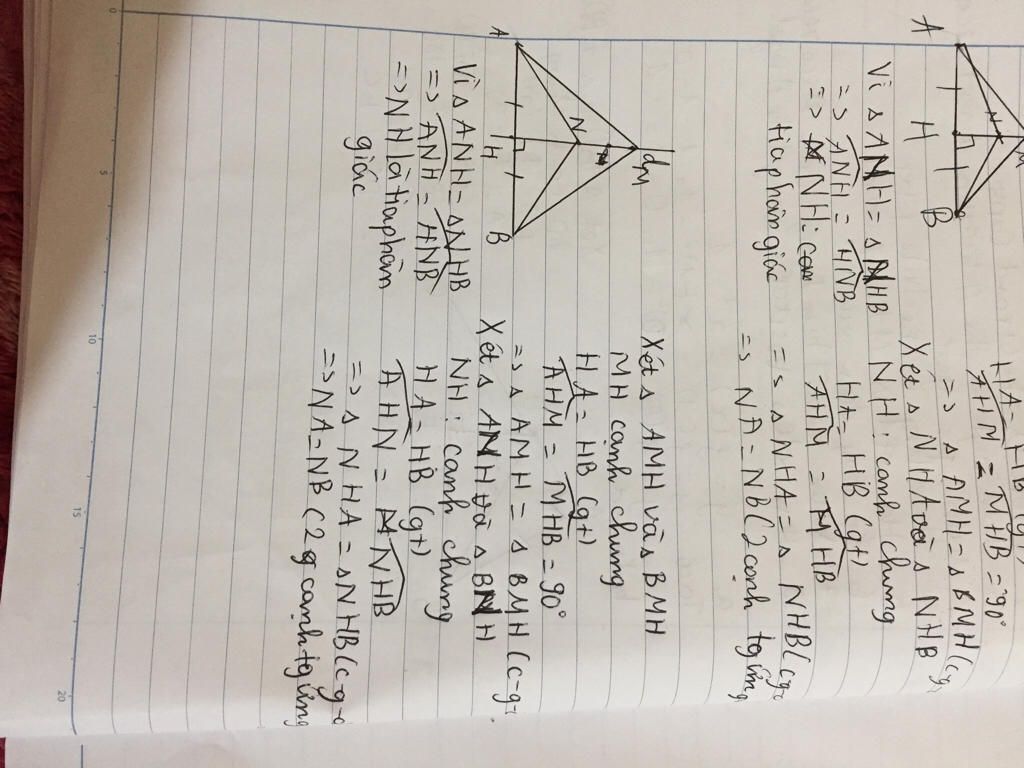 HA = HB (gt)
AHM = MHB = 90°
=> Δ AMH = Δ BMH (c-g-
Xét Δ NHA và Δ NHB
NH : cạnh chung
HA = HB (gt)
AHN = NHB
=> Δ NHA = Δ NHB (c-g-c
=> NA = NB (2 cạnh tg ứng
A
N
M
H
B
Vì Δ ANH = Δ NHB
=> ANH = HNB
=> NH :
tia phân giác
Xét Δ AMH và Δ BMH
MH cạnh chung
HA = HB (gt)
AHM = MHB = 90°
=> Δ AMH = Δ BMH (c-g-
Xét Δ ANH và Δ BNH
NH : cạnh chung
HA = HB (gt)
AHN = NHB
=> Δ NHA = Δ NHB (c-g-c
=> NA = NB (2 cạnh tg ứng
A
N
d
M
H
B
Vì Δ ANH = Δ NHB
=> ANH = HNB
=> NH là tia phân
giác
0
5
10
15
20